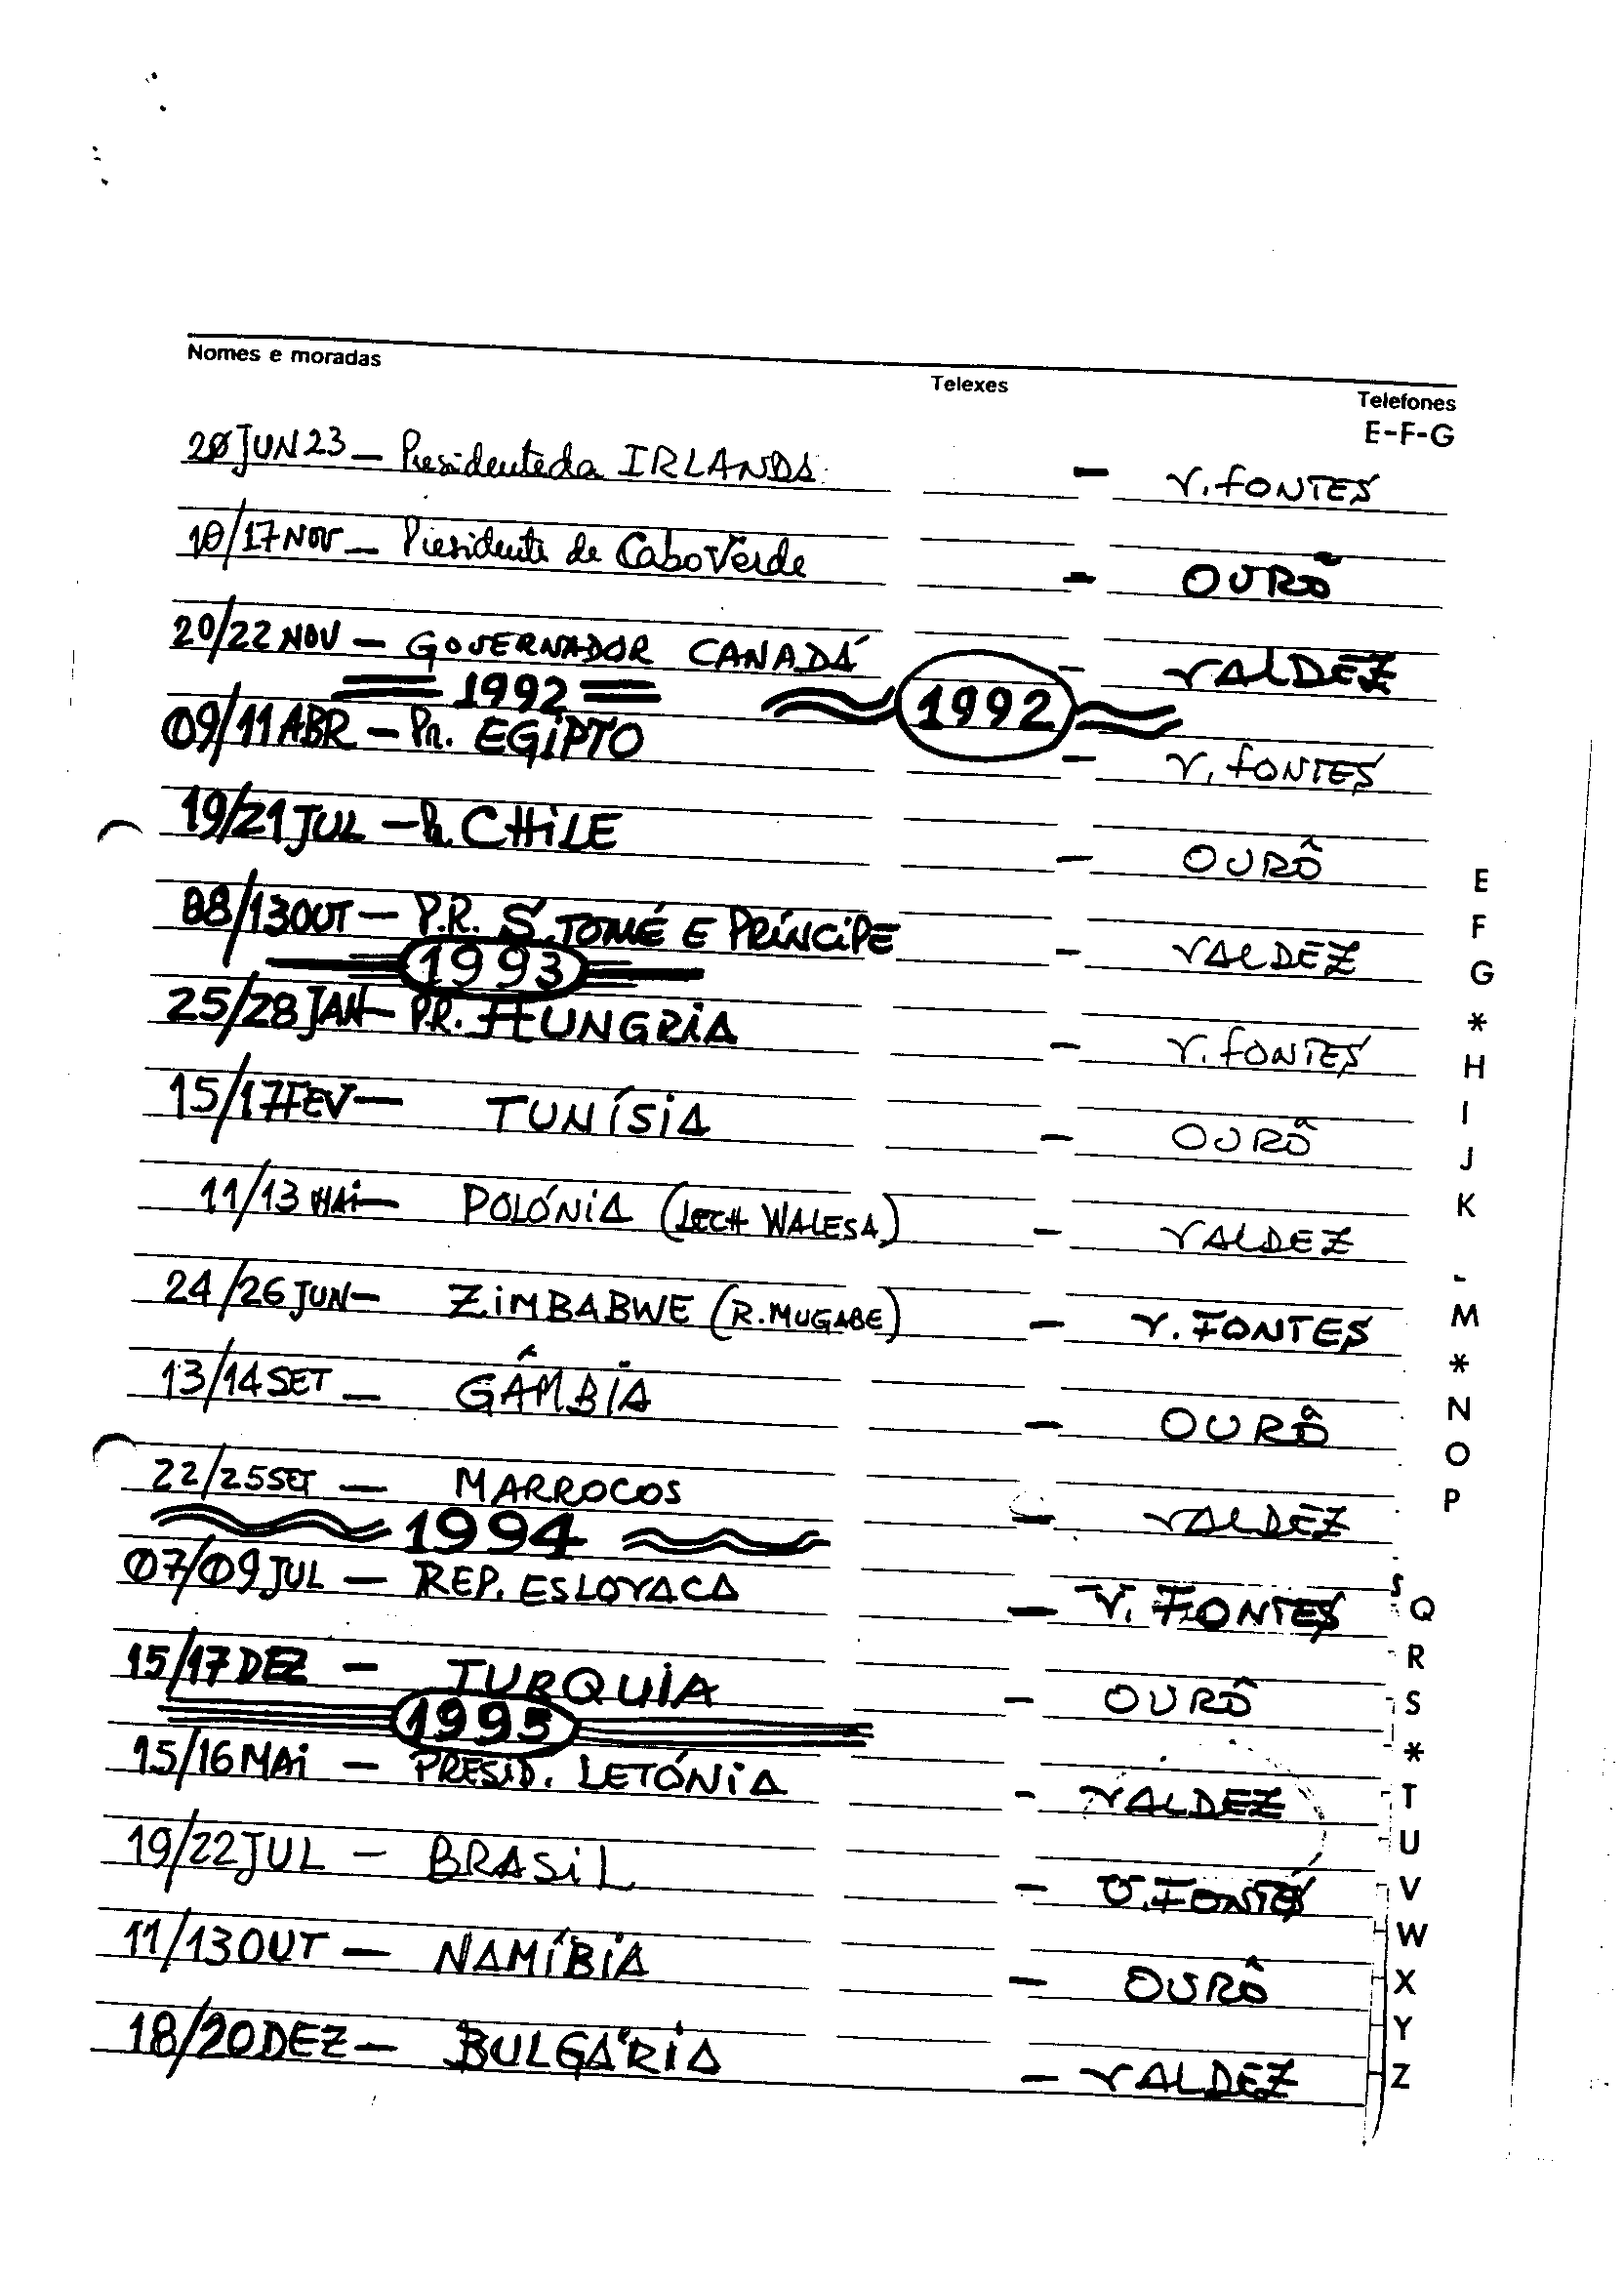 Nomes e moradas Telexes Telefones
E-F-G
20 JUN 23 — Presidente da IRLANDA. — V. FONTES
10/17 NOV — Presidente de Cabo Verde — OURÔ
20/22 NOV — GOVERNADOR CANADÁ — VALDEZ
1992 1992
09/11 ABR — Pr. EGIPTO — V. FONTES
19/21 JUL — Pr. CHILE — OURÔ
08/13 OUT — P.R. S. TOMÉ E PRÍNCIPE — VALDEZ
1993
25/28 JAN — P.R. HUNGRIA — V. FONTES
15/17 FEV — TUNÍSIA — OURÔ
11/13 MAI — POLÓNIA (LECH WALESA) — VALDEZ
24/26 JUN — ZIMBABWE (R. MUGABE) — V. FONTES
13/14 SET — GÂMBIA — OURÔ
22/25 SET — MARROCOS — VALDEZ
1994
07/09 JUL — REP. ESLOVACA — V. FONTES
15/17 DEZ — TURQUIA — OURÔ
1995
15/16 MAI — PRESID. LETÓNIA — VALDEZ
19/22 JUL — BRASIL — V. FONTES
11/13 OUT — NAMÍBIA — OURÔ
18/20 DEZ — BULGÁRIA — VALDEZ
E
F
G
*
H
I
J
K
M
*
N
O
P
Q
R
S
*
T
U
V
W
X
Y
Z